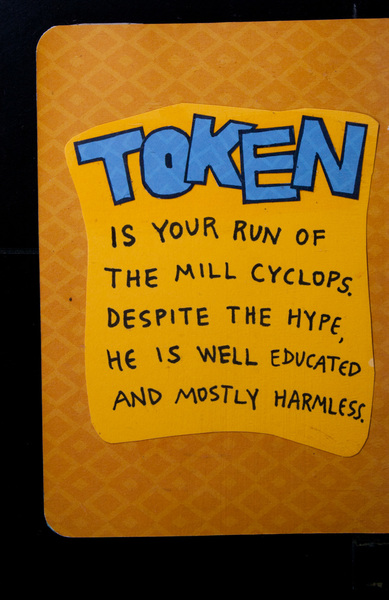 TOKEN
IS YOUR RUN OF
THE MILL CYCLOPS.
DESPITE THE HYPE,
HE IS WELL EDUCATED
AND MOSTLY HARMLESS.